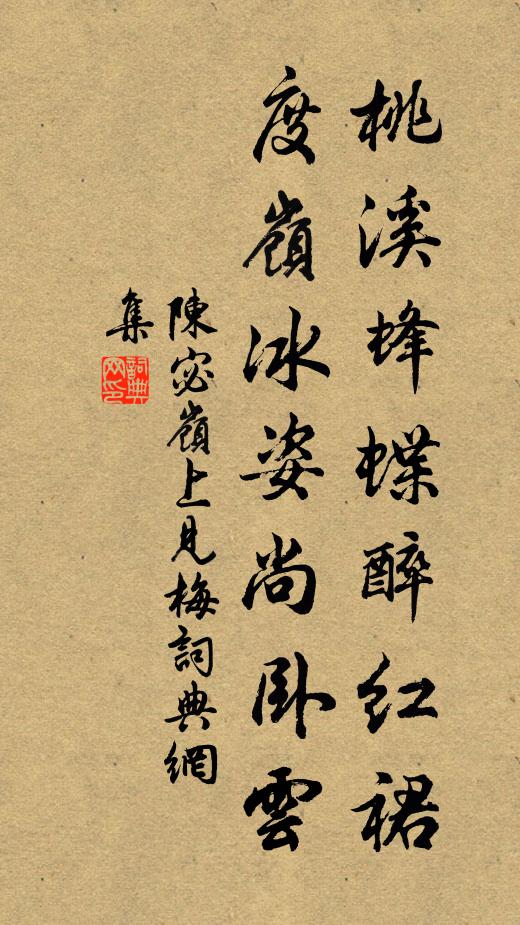 桃溪蜂蝶醉红裙
度嶺冰姿尚卧雲
陳宓嶺上見梅詞典網
集
詞典网印